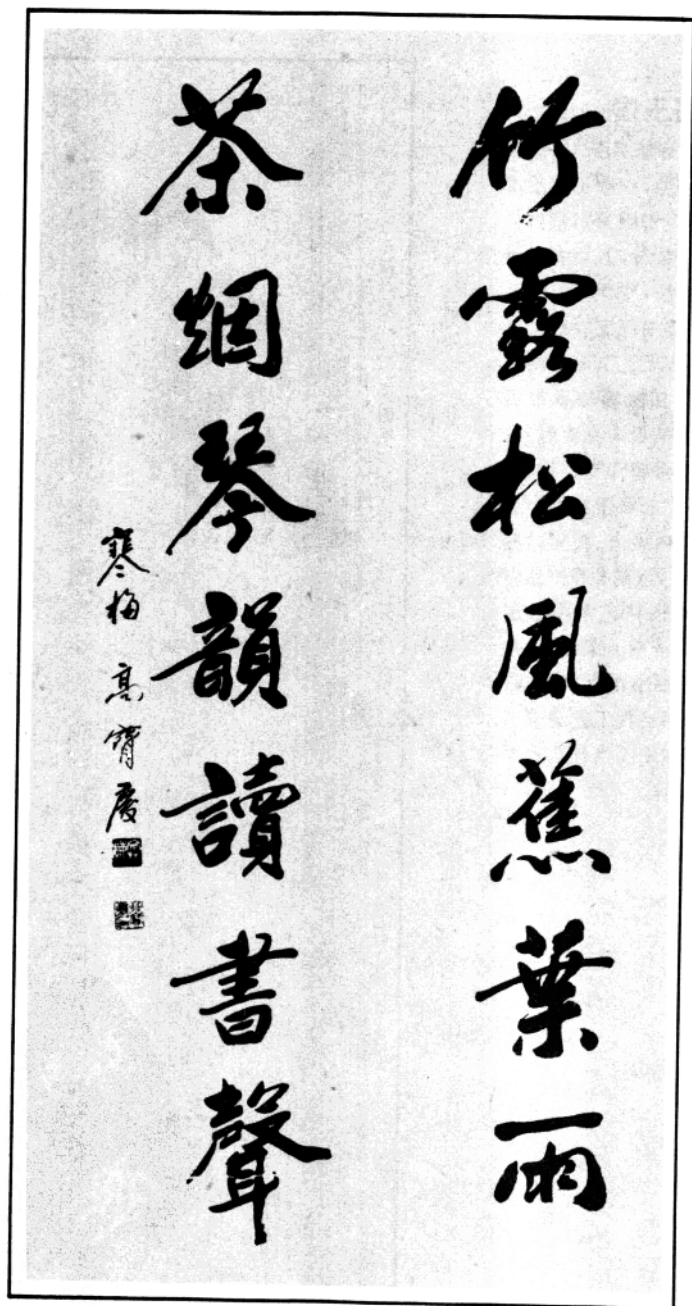 竹露松風蕉葉雨
茶烟琴韻讀書聲
寒梅 高寶慶